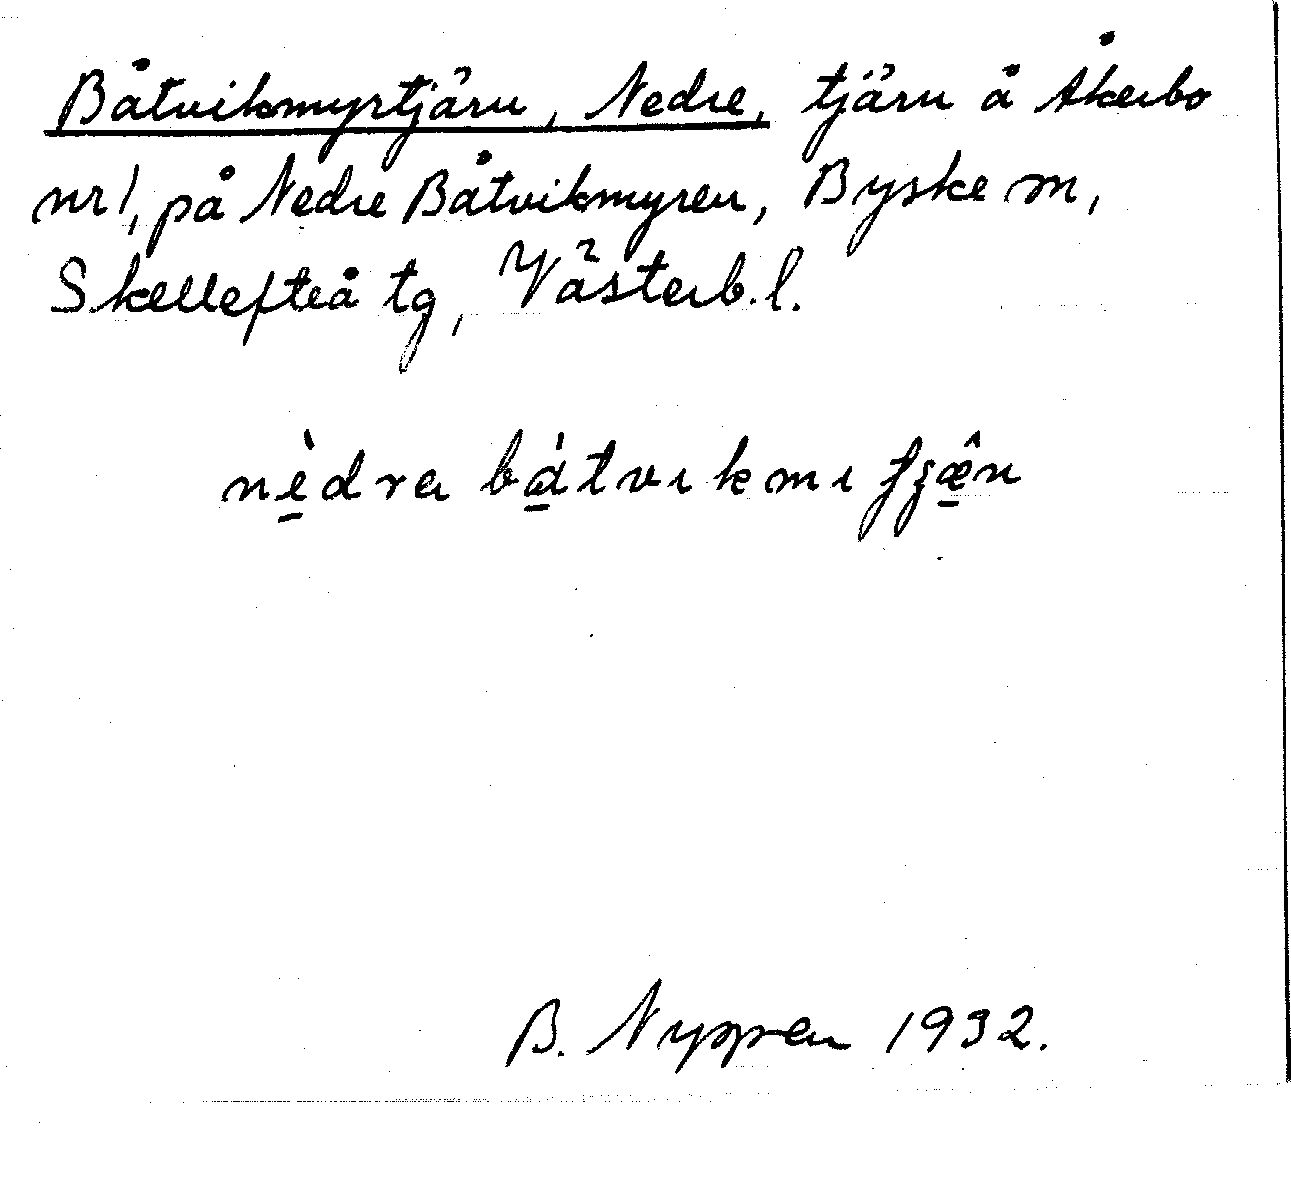 Båtvikmyrtjärn, Nedre, tjärn å Åkerbo
nr 1, på Nedre Båtvikmyren, Byske sn,
Skellefteå tg, Västerb. l.
nè̱dra bå̱̀tvıkmı tjæ̱̂n
B. Nyppen 1932.